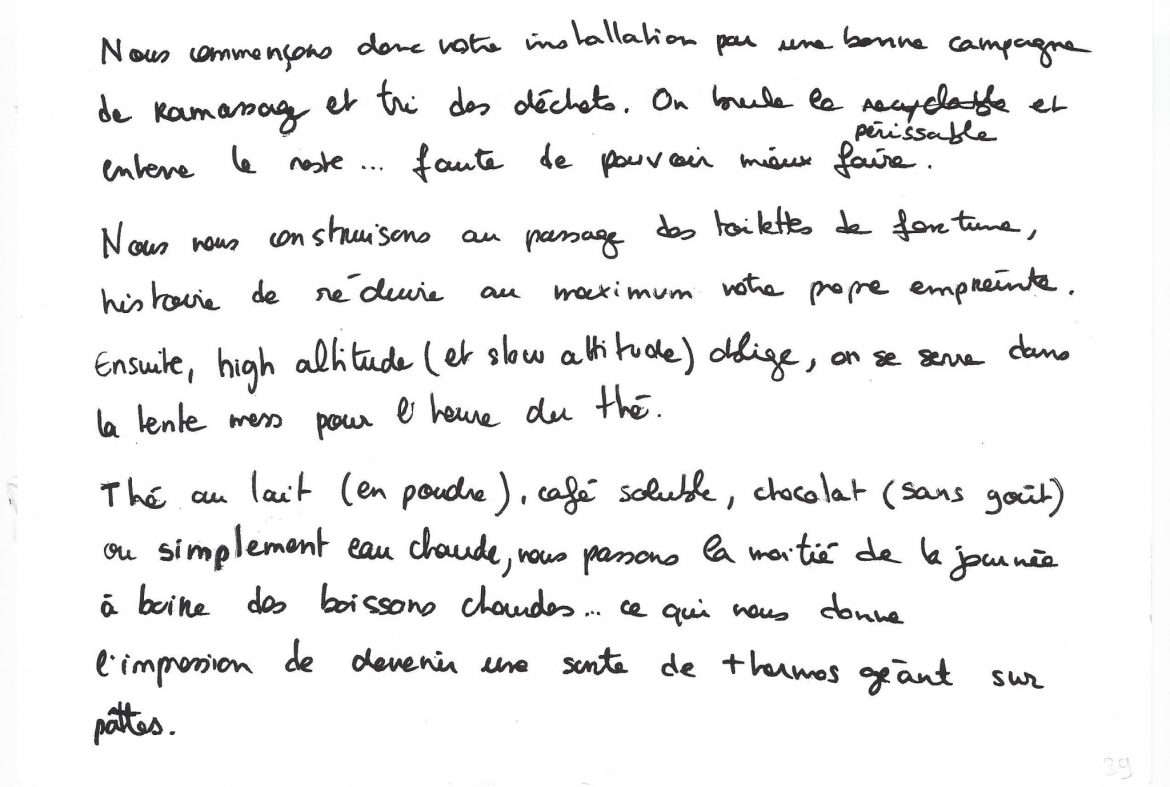 Nous commençons donc notre installation par une bonne campagne
de ramassage et tri des déchets. On brule le recyclable et
périssable
enlève le reste... faute de pouvoir mieux faire.
Nous nous construisons au passage des toilettes de fortune,
histoire de réduire au maximum notre propre empreinte.
Ensuite, high altitude (et slow attitude) oblige, on se serre dans
la tente mess pour l'heure du thé.
Thé au lait (en poudre), café soluble, chocolat (sans goût)
ou simplement eau chaude, nous passons la moitié de la journée
à boire des boissons chaudes... ce qui nous donne
l'impression de devenir une sorte de thermos géant sur
pâttes.
39